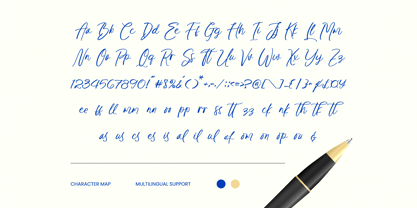 Aa Bb Cc Dd Ee Ff Gg Hh Ii Jj Kk Ll Mm
Nn Oo Pp Qq Rr Ss Tt Uu Vv Ww Xx Yy Zz
1234567890!
ee ff ll mm nn oo pp rr ss tt zz ck nk th
us cs es is al il ul of om on op ou
CHARACTER MAP
MULTILINGUAL SUPPORT